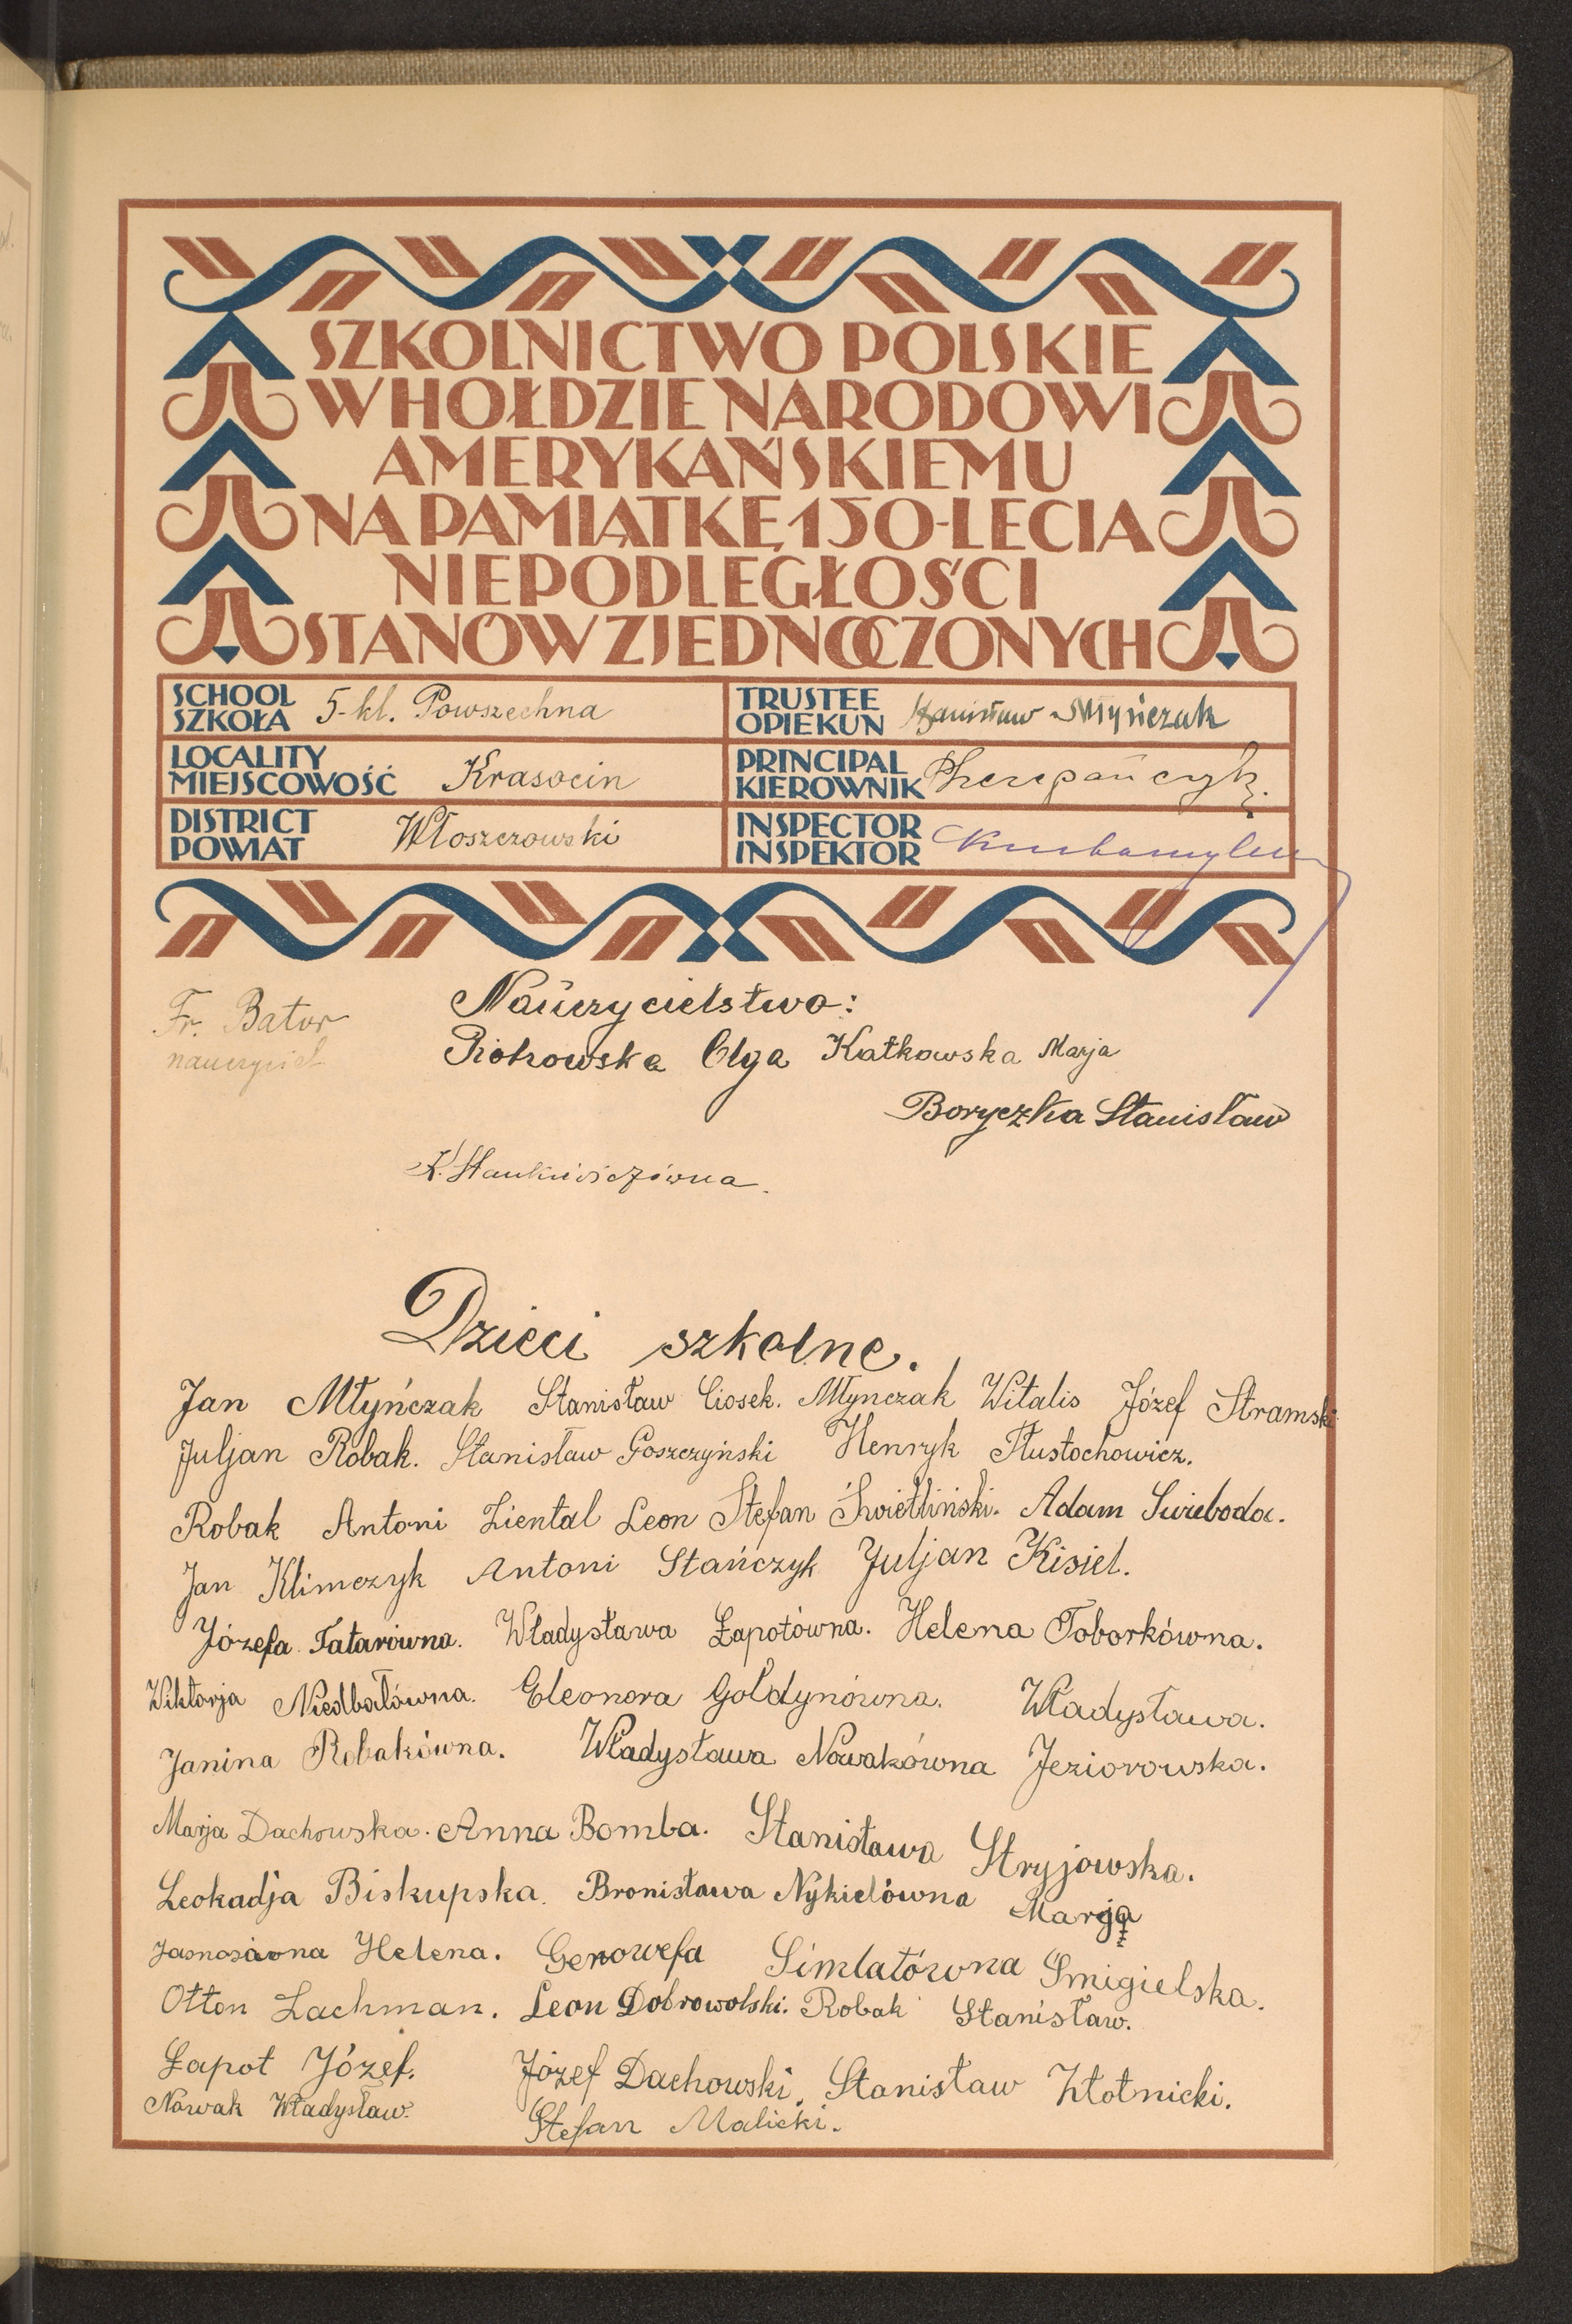 SZKOLNICTWO POLSKIE
W HOŁDZIE NARODOWI
AMERYKAŃSKIEMU
NA PAMIĄTKĘ 150-LECIA
NIEPODLEGŁOŚCI
STANÓW ZJEDNOCZONYCH
SCHOOL
SZKOŁA 5-kl. Powszechna
TRUSTEE
OPIEKUN Stanisław Młyńczak
LOCALITY
MIEJSCOWOŚĆ Krasocin
PRINCIPAL
KIEROWNIK
DISTRICT
POWIAT Włoszczowski
INSPECTOR
INSPEKTOR
Fr. Bator
nauczyciel
Nauczycielstwo:
Piotrowska Olga Katkowska Marja
Boryczka Stanisław
K. Stankiewiczówna.
Dzieci szkolne.
Jan Młyńczak Stanisław Ciosek. Młynczak Witalis Józef Stramski
Juljan Robak. Stanisław Goszczyński Henryk Tłustochowicz.
Robak Antoni Ziental Leon Stefan Świetliński. Adam Swieboda.
Jan Klimczyk Antoni Stańczyk Juljan Kisiel.
Józefa Tatarówna. Władysława Łapotówna. Helena Toborkówna.
Wiktorja Niedbałówna. Eleonora Gołdynówna. Władysława.
Janina Robakówna. Władysława Nowakówna Jeziorowska.
Marja Dachowska. Anna Bomba. Stanisława Stryjowska.
Leokadja Biskupska. Bronisława Nykielówna Marja
Helena. Genowefa Simlatówna Smigielska.
Otton Lachman. Leon Dobrowolski. Robak Stanisław.
Łapot Józef. Józef Dachowski. Stanisław Złotnicki.
Nowak Władysław. Stefan Malicki.